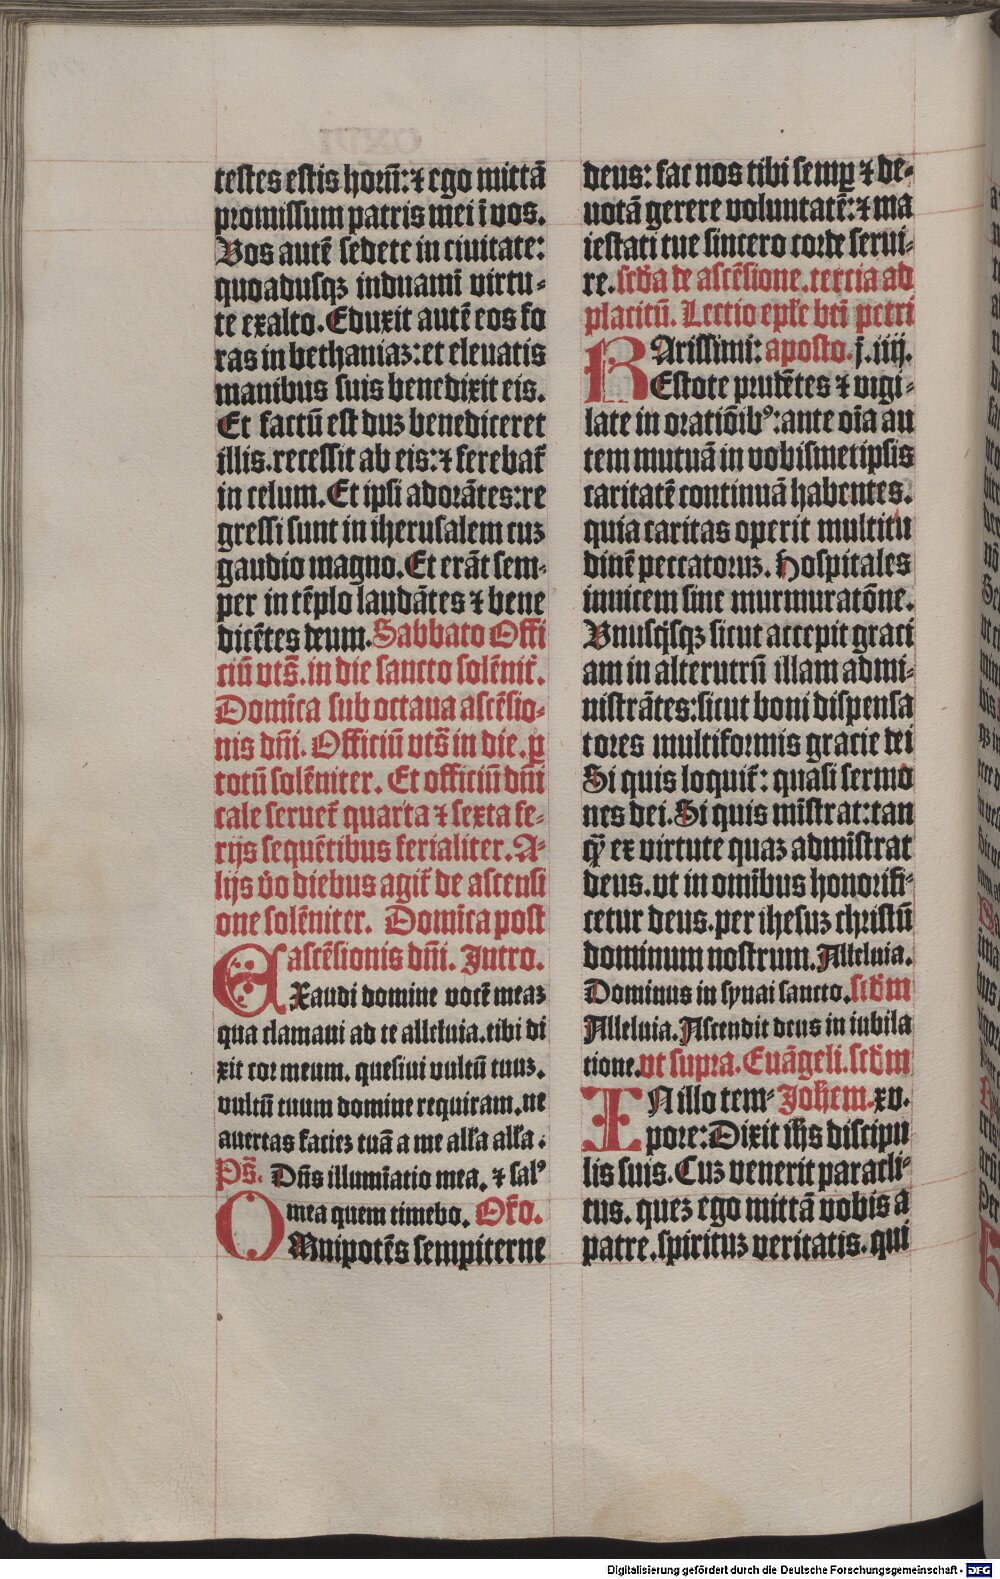 testes estis horũ: ⁊ ego mittā
promissum patris mei ī vos.
Vos autē sedete in ciuitate:
quoadusqꝫ induamī virtu-
te exalto. Eduxit autē eos fo
ras in bethaniaꝫ: et eleuatis
manibus suis benedixit eis.
Et factū est duꝫ benediceret
illis. recessit ab eis: ⁊ ferebat᷑
in celum. Et ipsi adorātes: re
gressi sunt in iherusalem cuꝫ
gaudio magno. Et erāt sem-
per in tēplo laudātes ⁊ bene
dicētes deum. Sabbato Offi
ciū vts̄. in die sancto solēnit᷑.
Domīca sub octaua ascēsio-
nis dn̄i. Officiū vts̄ in die. ꝑ
totū solēniter. Et officiū dn̄i
cale seruet᷑ quarta ⁊ sexta fe-
rijs sequētibus ferialiter. A-
lijs v̊o diebus agit᷑ de ascensi
one solēniter. Domīca post
ascēsionis dn̄i. Intro.
EXaudi domine vocē meaꝫ
qua clamaui ad te alleluia. tibi di
xit cor meum. quesiui vultū tuuꝫ.
vultū tuum domine requiram. ne
auertas facieꝫ tuā a me alľa alľa.
Ps̄. Dn̄s illumīatio mea. ⁊ salꝰ
mea quem timebo. Or̄o.
OMnipotēs sempiterne
deus: fac nos tibi semꝑ ⁊ de-
uotā gerere voluntatē: ⁊ ma
iestati tue sincero corde serui-
re. scd̄a de ascēsione. tercia ad
placitū. Lectio epľe bti̅ petri
KArissimi: aposto. j. iiij.
Estote prudētes ⁊ vigi-
late in oratiōibꝰ: ante oīa au
tem mutuā in vobismetipsis
caritatē continuā habentes.
quia caritas operit multitu
dinē peccatoruꝫ. Hospitales
inuicem sine murmuratōne.
Vnusq̇sqꝫ sicut accepit graci
am in alterutrū illam admi-
nistrātes: sicut boni dispensa
tores multiformis gracie dei
Si quis loquit᷑: quasi sermo
nes dei. Si quis mīstrat: tan
ꝙ̄ ex virtute quaꝫ admīstrat
deus. vt in omībus honorifi-
cetur deus. per ihesuꝫ christū
dominum nostrum. Alleluia.
Dominus in synai sancto. scd̄m
Alleluia. Ascendit deus in iubila
tione. vt supra. Euāgeli. scd̄m
IN illo tem- Joħem. xv.
pore: Dixit iħs discipu
lis suis. Cuꝫ venerit paracli-
tus. queꝫ ego mittā vobis a
patre. spirituꝫ veritatis. qui
Digitalisierung gefördert durch die Deutsche Forschungsgemeinschaft - DFG